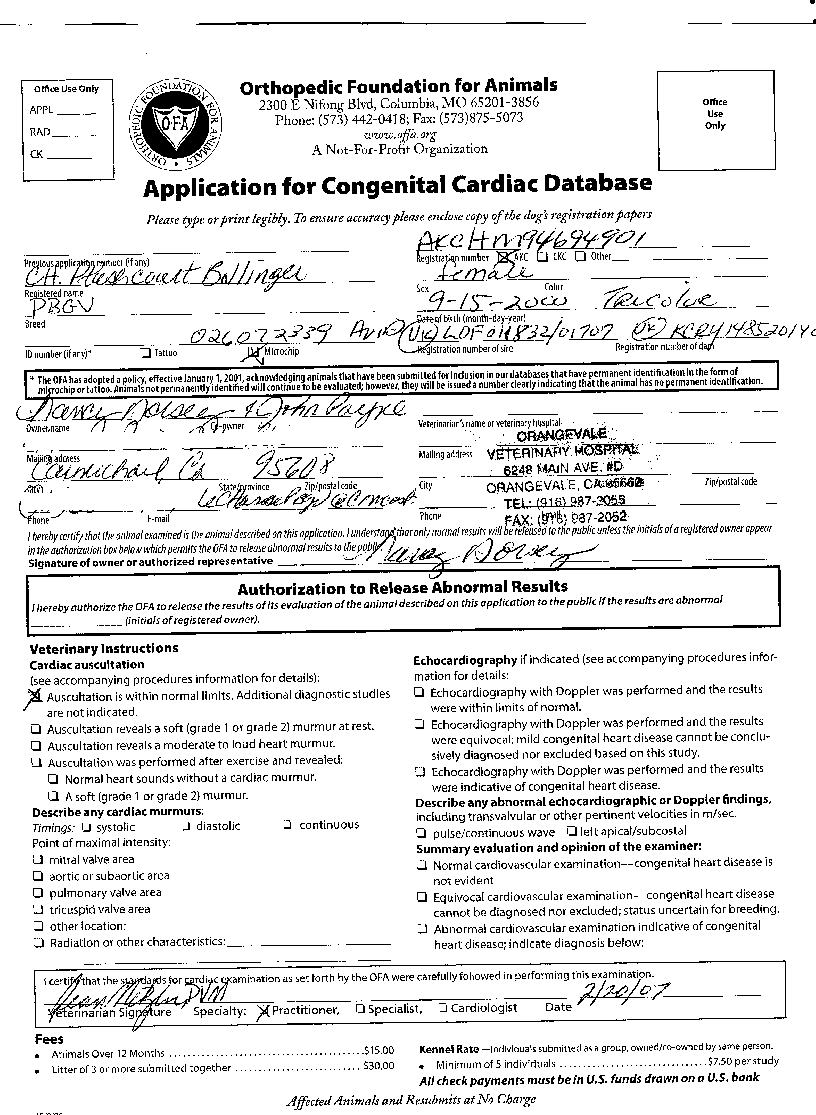 Office Use Only
APPL
RAD
CK
ORTHOPEDIC FOUNDATION FOR ANIMALS
OFA
Orthopedic Foundation for Animals
2300 E Nifong Blvd, Columbia, MO 65201-3856
Phone: (573) 442-0418; Fax: (573)875-5073
www.offa.org
A Not-For-Profit Organization
Office
Use
Only
Application for Congenital Cardiac Database
Please type or print legibly. To ensure accuracy please enclose copy of the dog's registration papers
AKC HM94694901
Previous application number (if any)
Registration number AKC CKC Other
CH. Bollinger
female
Registered name
Sex Color
PBGV
9-15-2000
Breed
Date of birth (month-day-year)
026072339 AVID (UK)
ID number (if any)* Tattoo Microchip Registration number of sire Registration number of dam
* The OFA has adopted a policy, effective January 1, 2001, acknowledging animals that have been submitted for inclusion in our databases that have permanent identification in the form of
microchip or tattoo. Animals not permanently identified will continue to be evaluated; however, they will be issued a number clearly indicating that the animal has no permanent identification.
Nancy Dorsey & John Payne
Owner name Co-owner Veterinarian's name or veterinary hospital
ORANGEVALE
VETERINARY HOSPITAL
Mailing address Mailing address
6248 MAIN AVE. #D
Carmichael, Ca 95608
ORANGEVALE, CA 95662
City State/province Zip/postal code City Zip/postal code
TEL: (916) 987-2055
Phone E-mail Phone
FAX: (916) 987-2052
I hereby certify that the animal examined is the animal described on this application. I understand that only normal results will be released to the public unless the initials of a registered owner appear
in the authorization box below which permits the OFA to release abnormal results to the public.
Signature of owner or authorized representative Nancy Dorsey
Authorization to Release Abnormal Results
I hereby authorize the OFA to release the results of its evaluation of the animal described on this application to the public if the results are abnormal
(initials of registered owner).
Veterinary Instructions
Cardiac auscultation
(see accompanying procedures information for details):
Auscultation is within normal limits. Additional diagnostic studies
are not indicated.
Auscultation reveals a soft (grade 1 or grade 2) murmur at rest.
Auscultation reveals a moderate to loud heart murmur.
Auscultation was performed after exercise and revealed:
Normal heart sounds without a cardiac murmur.
A soft (grade 1 or grade 2) murmur.
Describe any cardiac murmurs:
Timings: systolic diastolic continuous
Point of maximal intensity:
mitral valve area
aortic or subaortic area
pulmonary valve area
tricuspid valve area
other location:
Radiation or other characteristics:
Echocardiography if indicated (see accompanying procedures infor-
mation for details:
Echocardiography with Doppler was performed and the results
were within limits of normal.
Echocardiography with Doppler was performed and the results
were equivocal; mild congenital heart disease cannot be conclu-
sively diagnosed nor excluded based on this study.
Echocardiography with Doppler was performed and the results
were indicative of congenital heart disease.
Describe any abnormal echocardiographic or Doppler findings,
including transvalvular or other pertinent velocities in m/sec.
pulse/continuous wave left apical/subcostal
Summary evaluation and opinion of the examiner:
Normal cardiovascular examination—congenital heart disease is
not evident
Equivocal cardiovascular examination– congenital heart disease
cannot be diagnosed nor excluded; status uncertain for breeding.
Abnormal cardiovascular examination indicative of congenital
heart disease; indicate diagnosis below:
I certify that the standards for cardiac examination as set forth by the OFA were carefully followed in performing this examination.
DVM 2/20/07
Veterinarian Signature Specialty: Practitioner, Specialist, Cardiologist Date
Fees
Animals Over 12 Months $15.00
Litter of 3 or more submitted together $30.00
Kennel Rate —Individua's submitted as a group, owned/co-owned by same person.
Minimum of 5 individuals $7.50 per study
All check payments must be in U.S. funds drawn on a U.S. bank
Affected Animals and Resubmits at No Charge